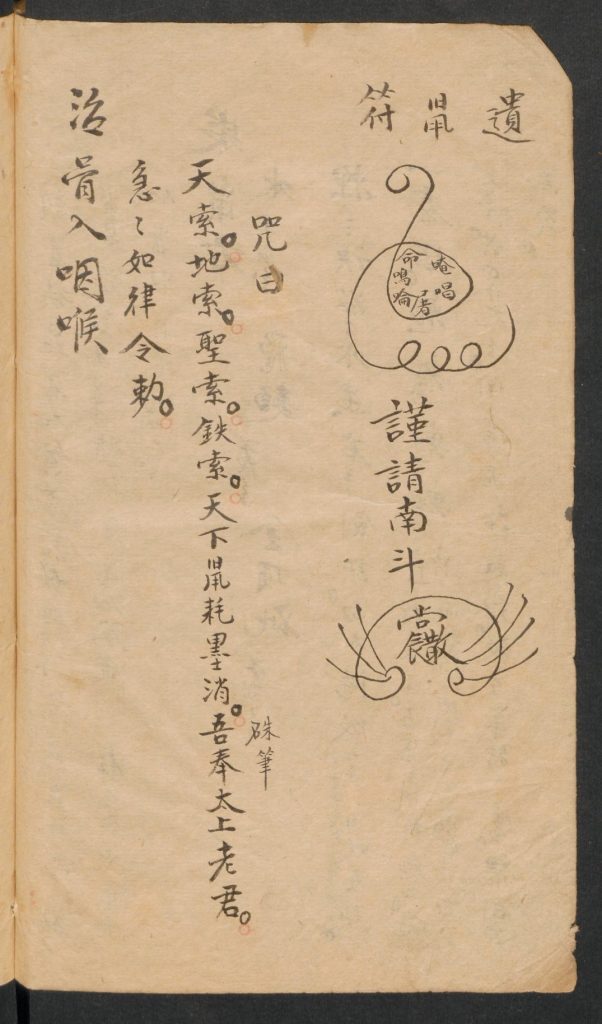 遺鼡符
唵唱
命鳴
謹請南斗
咒曰
硃筆
天索。地索。聖索。鉄索。天下鼡耗墨消。吾奉太上老君。
急〻如律令勅。
治骨入咽喉